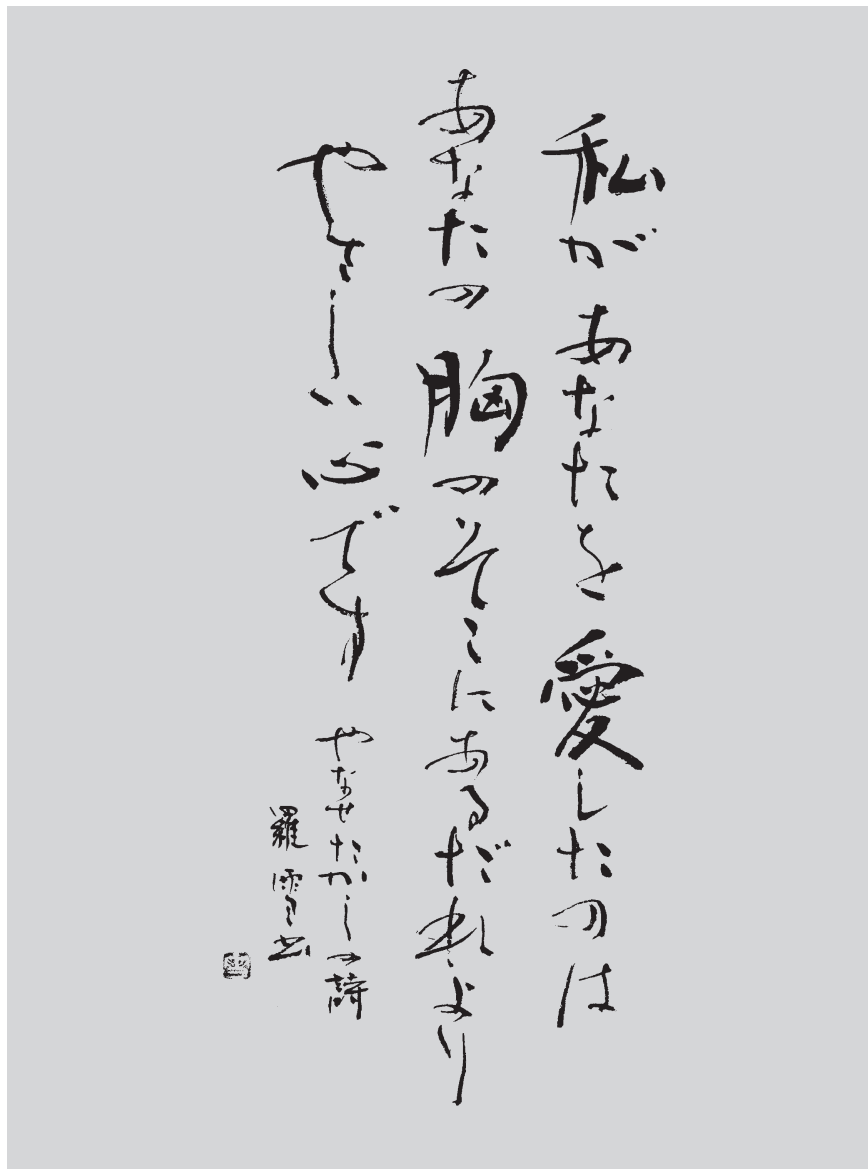 私があなたを愛したのは
あなたの胸のそこにあるだれより
やさしい心です
やなせたかしの詩
羅雪書